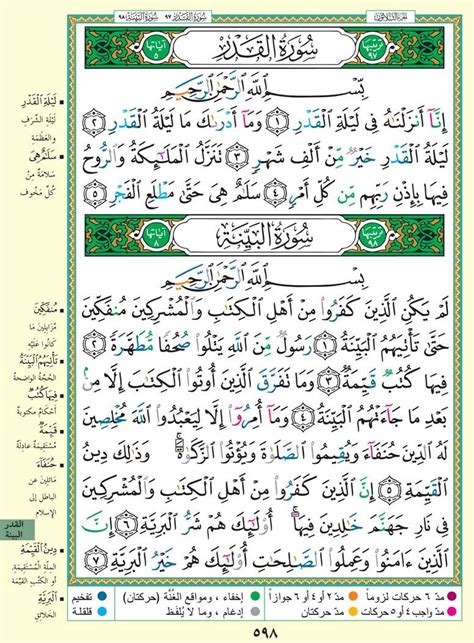 سُورَةُ القَدْرِ ٩٧ سُورَةُ البَيِّنَةِ ٩٨
ترتيبها ٩٧ سُورَةُ القَدْرِ آياتها ٥
بِسْمِ اللَّهِ الرَّحْمَٰنِ الرَّحِيمِ
إِنَّآ أَنزَلْنَٰهُ فِى لَيْلَةِ الْقَدْرِ ١ وَمَآ أَدْرَىٰكَ مَا لَيْلَةُ الْقَدْرِ ٢
لَيْلَةُ الْقَدْرِ خَيْرٌ مِّنْ أَلْفِ شَهْرٍ ٣ تَنَزَّلُ الْمَلَٰٓئِكَةُ وَالرُّوحُ
فِيهَا بِإِذْنِ رَبِّهِم مِّن كُلِّ أَمْرٍ ٤ سَلَٰمٌ هِىَ حَتَّىٰ مَطْلَعِ الْفَجْرِ ٥
ترتيبها ٩٨ سُورَةُ البَيِّنَةِ آياتها ٨
بِسْمِ اللَّهِ الرَّحْمَٰنِ الرَّحِيمِ
لَمْ يَكُنِ الَّذِينَ كَفَرُوا۟ مِنْ أَهْلِ الْكِتَٰبِ وَالْمُشْرِكِينَ مُنفَكِّينَ
حَتَّىٰ تَأْتِيَهُمُ الْبَيِّنَةُ ١ رَسُولٌ مِّنَ اللَّهِ يَتْلُوا۟ صُحُفًا مُّطَهَّرَةً ٢
فِيهَا كُتُبٌ قَيِّمَةٌ ٣ وَمَا تَفَرَّقَ الَّذِينَ أُوتُوا۟ الْكِتَٰبَ إِلَّا مِنۢ
بَعْدِ مَا جَآءَتْهُمُ الْبَيِّنَةُ ٤ وَمَآ أُمِرُوٓا۟ إِلَّا لِيَعْبُدُوا۟ اللَّهَ مُخْلِصِينَ
لَهُ الدِّينَ حُنَفَآءَ وَيُقِيمُوا۟ الصَّلَوٰةَ وَيُؤْتُوا۟ الزَّكَوٰةَ وَذَٰلِكَ دِينُ
الْقَيِّمَةِ ٥ إِنَّ الَّذِينَ كَفَرُوا۟ مِنْ أَهْلِ الْكِتَٰبِ وَالْمُشْرِكِينَ
فِى نَارِ جَهَنَّمَ خَٰلِدِينَ فِيهَآ أُو۟لَٰٓئِكَ هُمْ شَرُّ الْبَرِيَّةِ ٦ إِنَّ
الَّذِينَ ءَامَنُوا۟ وَعَمِلُوا۟ الصَّٰلِحَٰتِ أُو۟لَٰٓئِكَ هُمْ خَيْرُ الْبَرِيَّةِ ٧
لَيْلَةِ الْقَدْرِ
لَيْلَةِ الشَّرَفِ
والعَظَمَةِ
سَلَامٌ هِىَ
سَلَامَةٌ مِنْ
كُلِّ مَخُوفٍ
مُنفَكِّينَ
مُزَايِلِينَ مَا
كَانُوا عَلَيْهِ
تَأْتِيَهُمُ الْبَيِّنَةُ
الحُجَّةُ الوَاضِحَةُ
فِيهَا كُتُبٌ
أَحْكَامٌ مَكْتُوبَةٌ
قَيِّمَةٌ
مُسْتَقِيمَةٌ عَادِلَةٌ
حُنَفَآءَ
مَائِلِينَ عَنِ
البَاطِلِ إِلَى
الإِسْلَامِ
دِينُ الْقَيِّمَةِ
المِلَّةُ المُسْتَقِيمَةُ
أَوِ الكُتُبِ القَيِّمَةِ
الْبَرِيَّةِ
الخَلَائِقِ
القدر
البينة
مدّ ٦ حركات لزوماً مدّ ٢ أو ٤ أو ٦ جوازاً إخفاء، ومواقع الغُنَّة (حركتان) تفخيم
مدّ واجب ٤ أو ٥ حركات مدّ حركتان إدغام، وما لا يُلفَظ قلقلة
٥٩٨